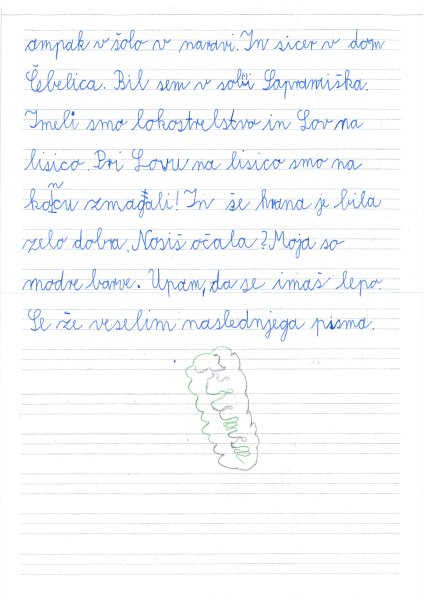 ampak v šolo v naravi. In sicer v dom
Čebelica. Bil sem v sobi Sapramiška.
Imeli smo lokostrelstvo in Lov na
lisico. Pri Lovu na lisico smo na
koncu zmagali! In še hrana je bila
zelo dobra. Nosiš očala? Moja so
modre barve. Upam, da se imaš lepo.
Se že veselim naslednjega pisma.